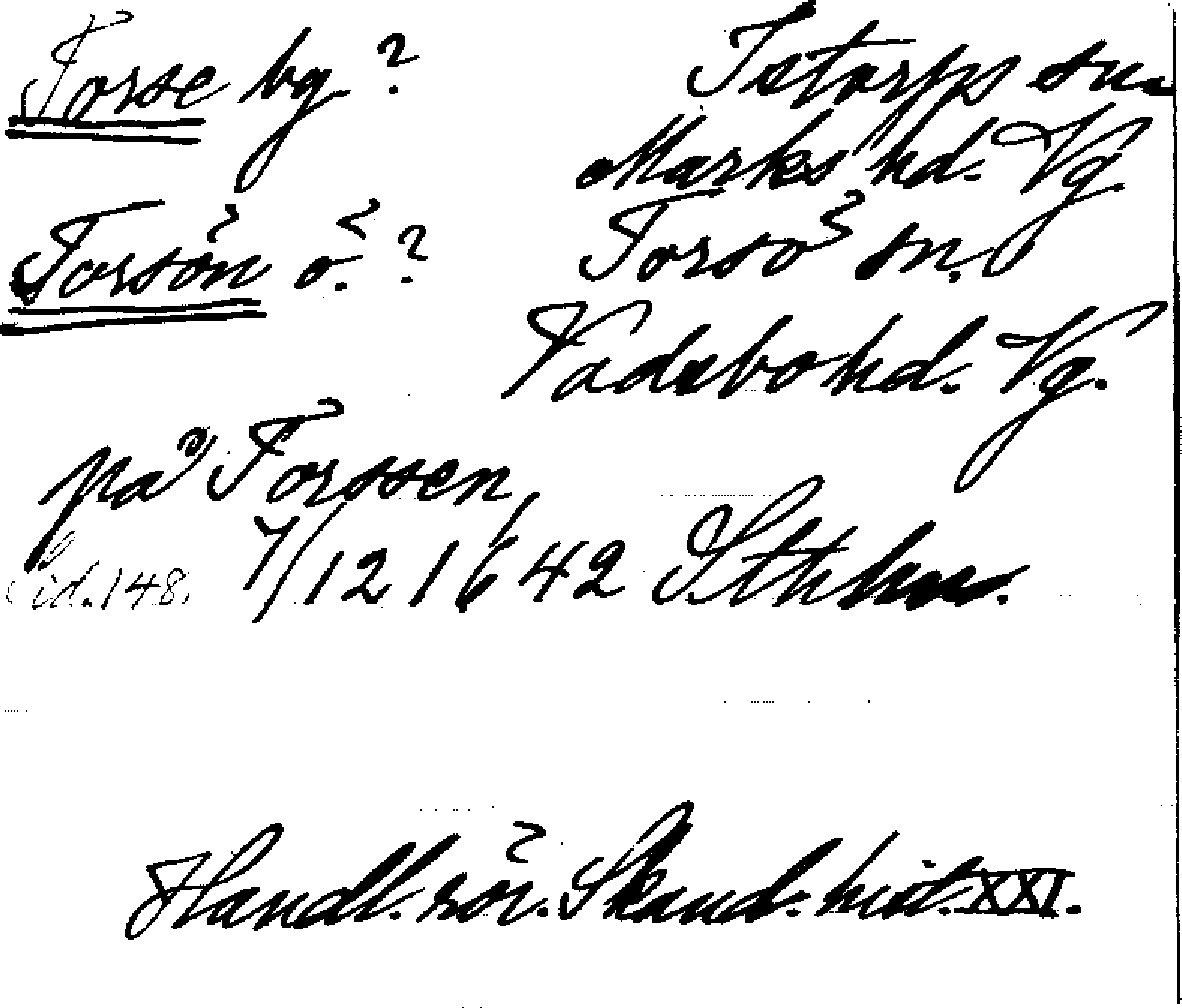 Torse bg ? Istorps sn.
Marks hd. Vg
Torsön ö. ? Torsö sn.
Vadsbo hd. Vg.
på Torssen,
sid. 148. 7/12 1642 Sthlm.
Handl. rör. Skand. hist. XXI.